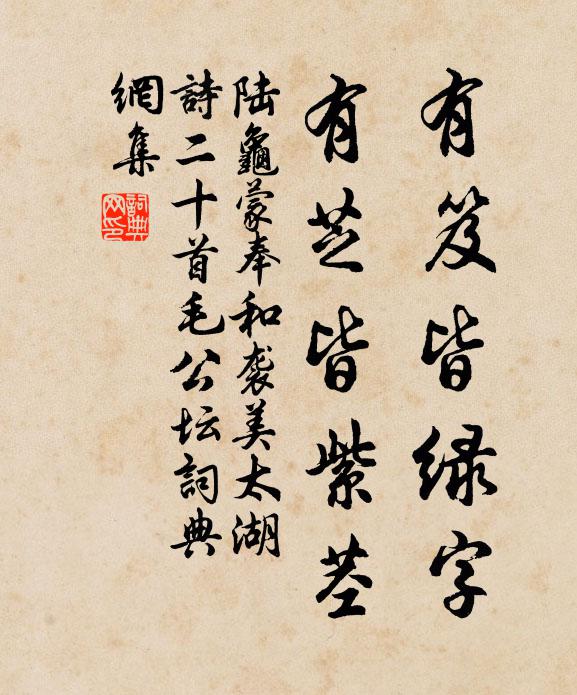 有笈皆绿字
有芝皆紫茎
陆龜蒙奉和袭美太湖
詩二十首毛公坛詞典
網集
詞典网印